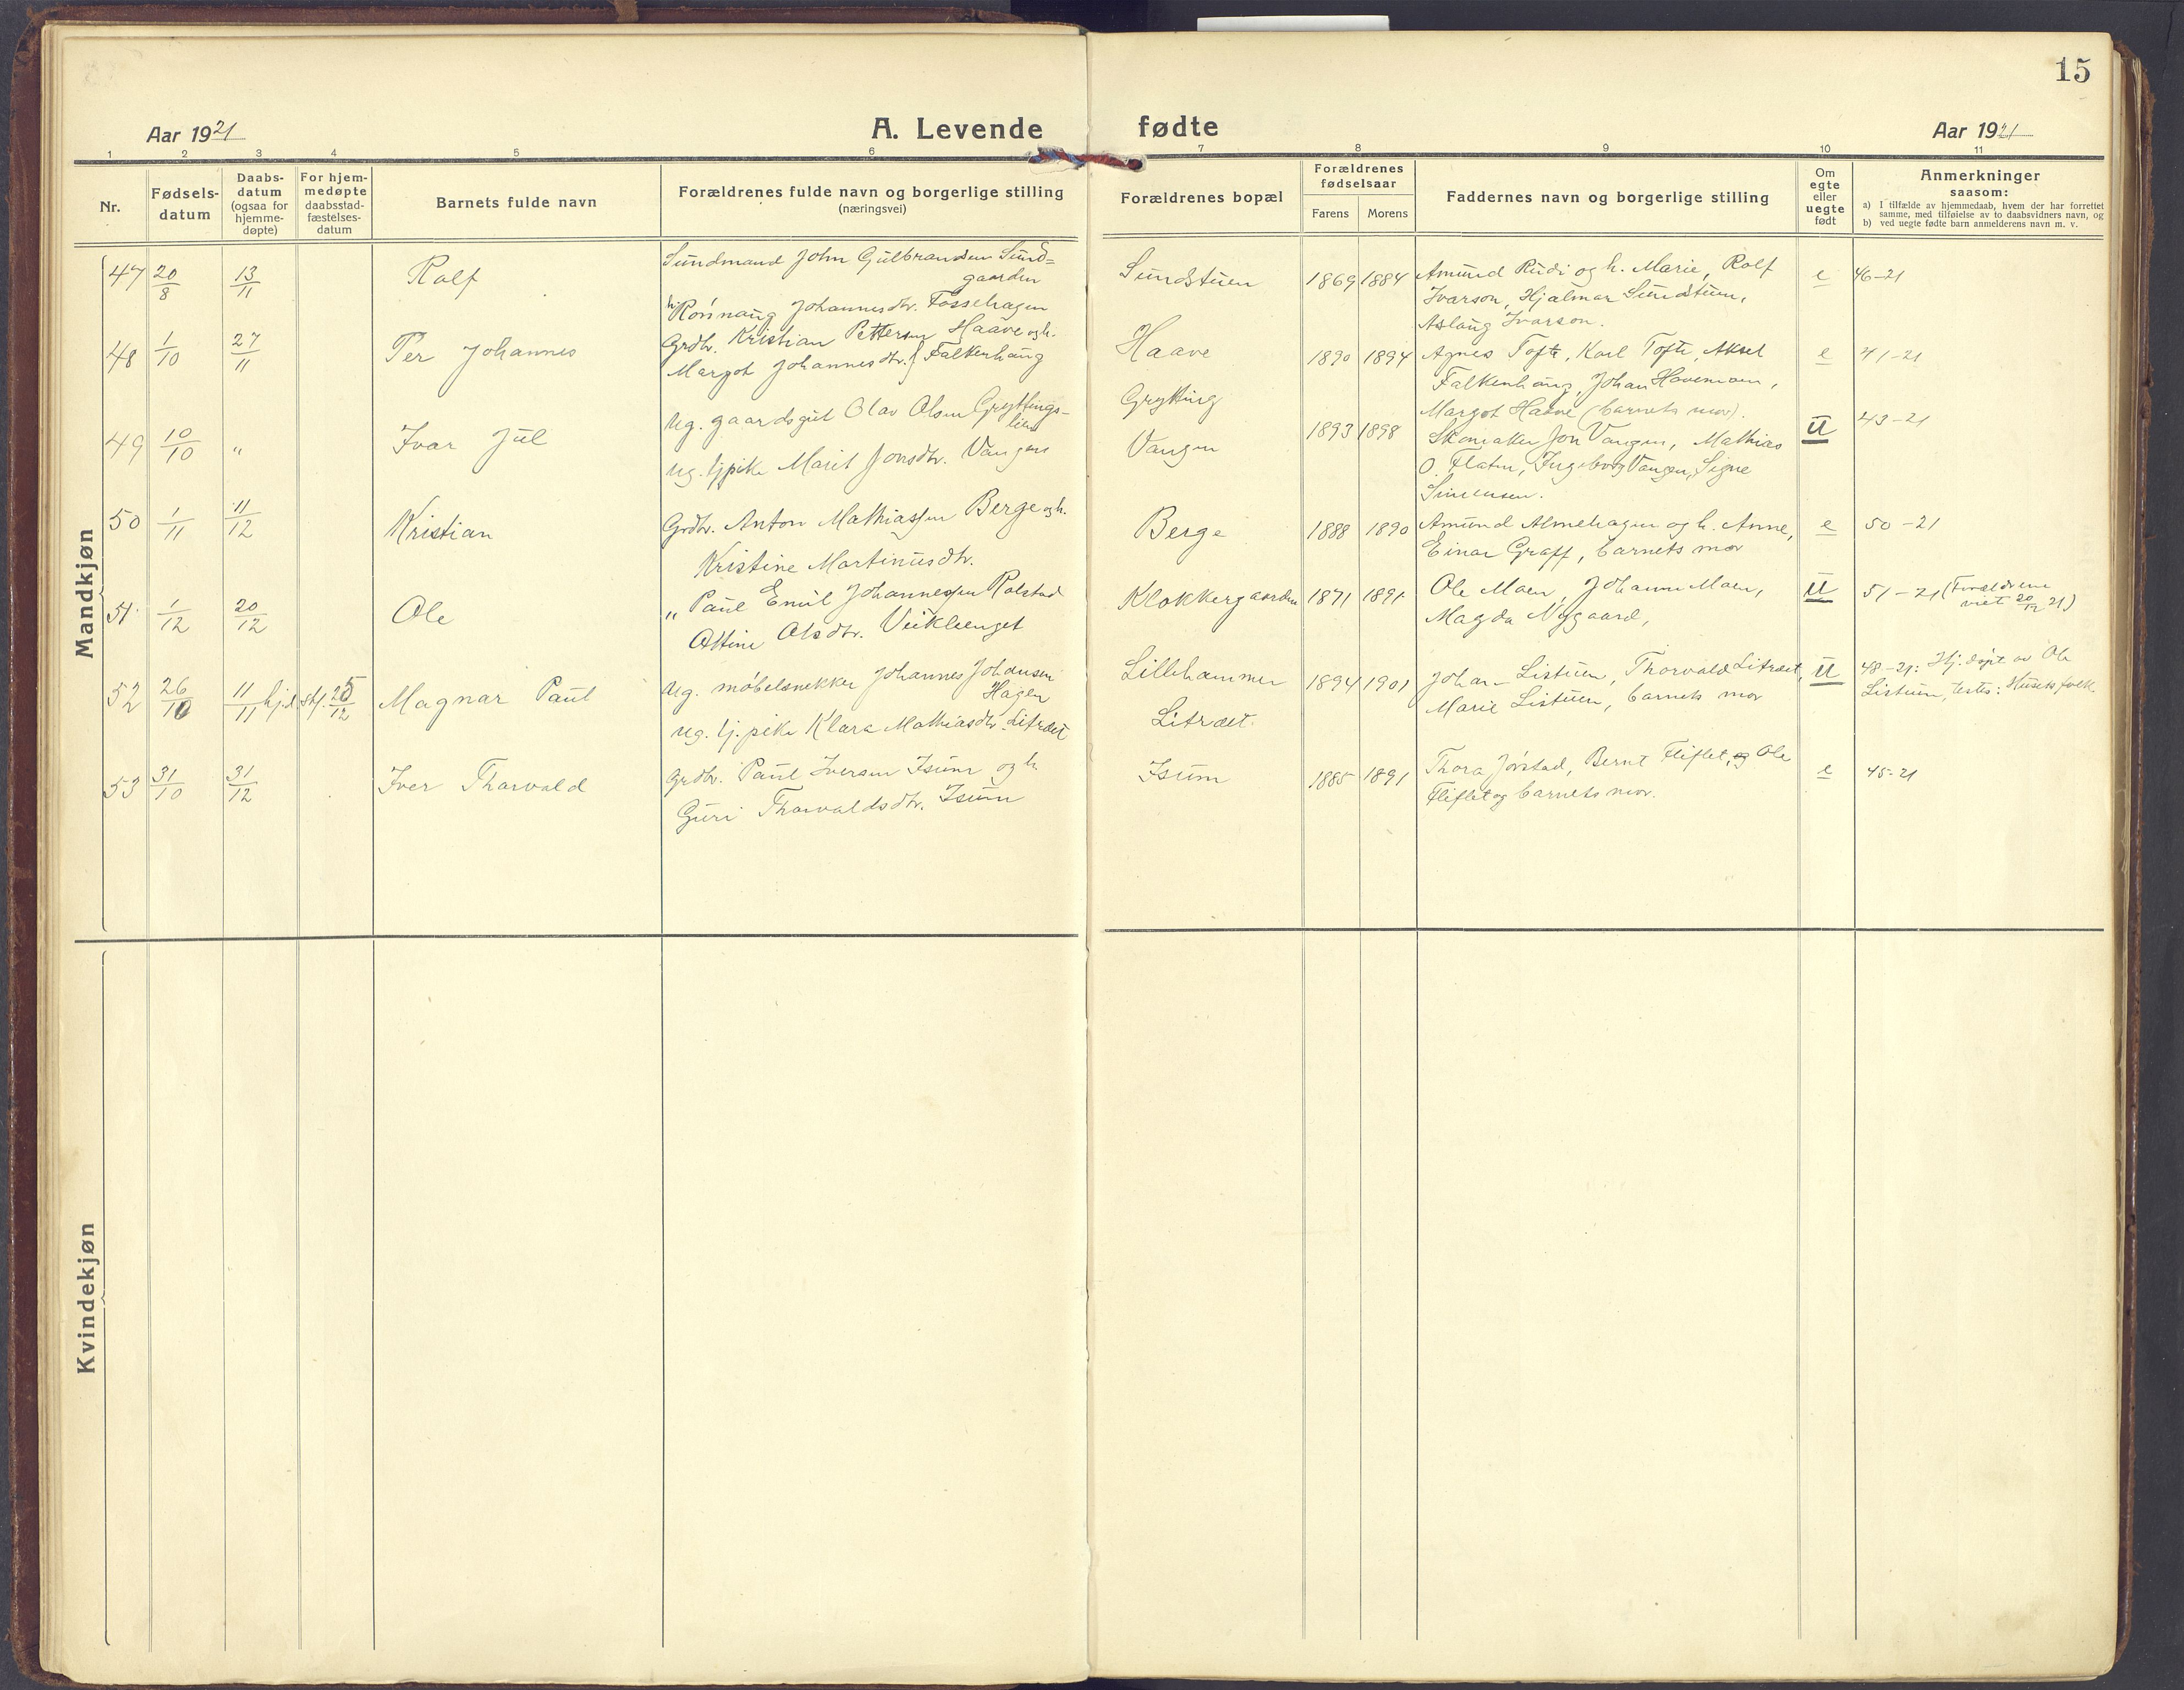 15
Aar 1921
A. Levende fødte
Aar 1921
1 2 3 4 5 6 7 8 9 10 11
Nr.
Fødsels-
datum
Daabs-
datum
(ogsaa for
hjemme-
døpte)
For hjem-
medøpte
daabsstad-
fæstelses-
datum
Barnets fulde navn
Forældrenes fulde navn og borgerlige stilling
(næringsvei)
Forældrenes bopæl
Forældrenes
fødselsaar
Farens Morens
Faddernes navn og borgerlige stilling
Om
egte
eller
uegte
født
Anmerkninger
saasom:
a) I tilfælde av hjemmedaab, hvem der har forrettet
samme, med tilføielse av to daabsvidners navn, og
b) ved uegte fødte barn anmelderens navn m. v.
Mandkjøn
47 20/8 13/11 Rolf
Sundmand John Gulbrandsen Sund=
gaarden
Rønnaug Johannesdtr. Fossehagen
Sundstuen 1869 1884
Amund Rudi og h. Marie, Rolf
Ivarson, Hjalmar Sundstuen,
Aslaug Ivarson.
e 46-21
48 1/10 27/11 Per Johannes
Grdbr. Kristian Pettersen Haave og h.
Margot Johannesdtr. f. Falkenhaug
Haave 1890 1894
Agnes Tofte, Karl Tofte, Aksel
Falkenhaug, Johan Havemoen,
Margot Haave (barnets mor).
e 41-21
49 10/10 " Ivar Jul
Ug. gaardsgut Olav Olsen Gryttings-
lien
ug. tj.pike Marit Jonsdtr. Vangen
Grytting
Vangen 1893 1898
Skomaker Jon Vangen, Mathias
O. Flaten, Ingeborg Vangen, Signe
Simensen.
U 43-21
50 1/11 11/12 Kristian
Grdbr. Anton Mathiassen Berge og h.
Kristine Martinusdtr.
Berge 1888 1890
Amund Almehagen og h. Anne,
Einar Graff, barnets mor
e 50-21
51 1/12 20/12 Ole
" Paul Emil Johannessen Rolstad
Attine Olsdtr. Veikleenget
Klokkergaarden 1871 1891
Ole Moen, Johanne Moen,
Magda Nygaard,
U 51-21 (Forældrene
viet 20/12 21)
52 26/10 11/11 hjd. stf. 25/12 Magnar Paul
Ug. møbelsnekker Johannes Johansen
Hagen
ug. tj. pike Klara Mathiasdtr. Litræet
Lillehammer
Litræet. 1894 1901
Johan Listuen, Thorvald Litræet,
Marie Listuen, barnets mor
U 48-21: Hj.døpt av Ole
Listuen, testes: Husets folk.
53 31/10 31/12 Iver Thorvald
Grdbr. Paul Iversen Isum og h.
Guri Thorvaldsdtr. Isum
Isum 1885 1891
Thora Jørstad, Bernt Fliflet, og Ole
Fliflet og barnets mor.
e 45-21
Kvindekjøn